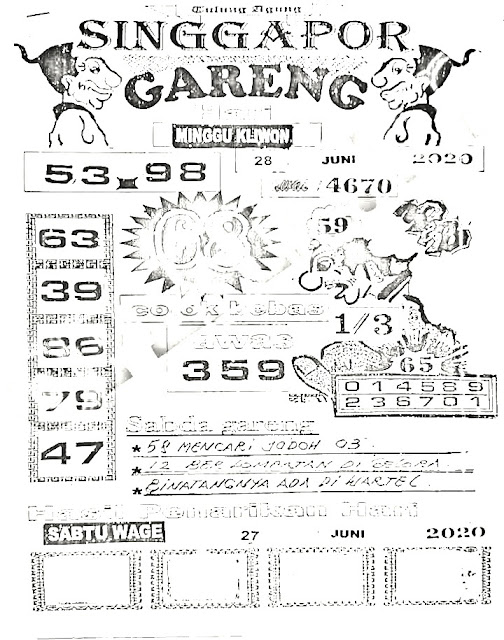 Tulung Agung
SINGGAPOR
GARENG
Hari
MINGGU KLIWON
28 JUNI 2020
53 98
4670
63
59
39
1/3
86
AWAS
359
65
79
014589
236701
47
Sabda gareng
MENCARI JODOH 03
DI
BINATANGNYA ADA DI WARTEL
Hasil Penarikan Hari
SABTU WAGE 27 JUNI 2020